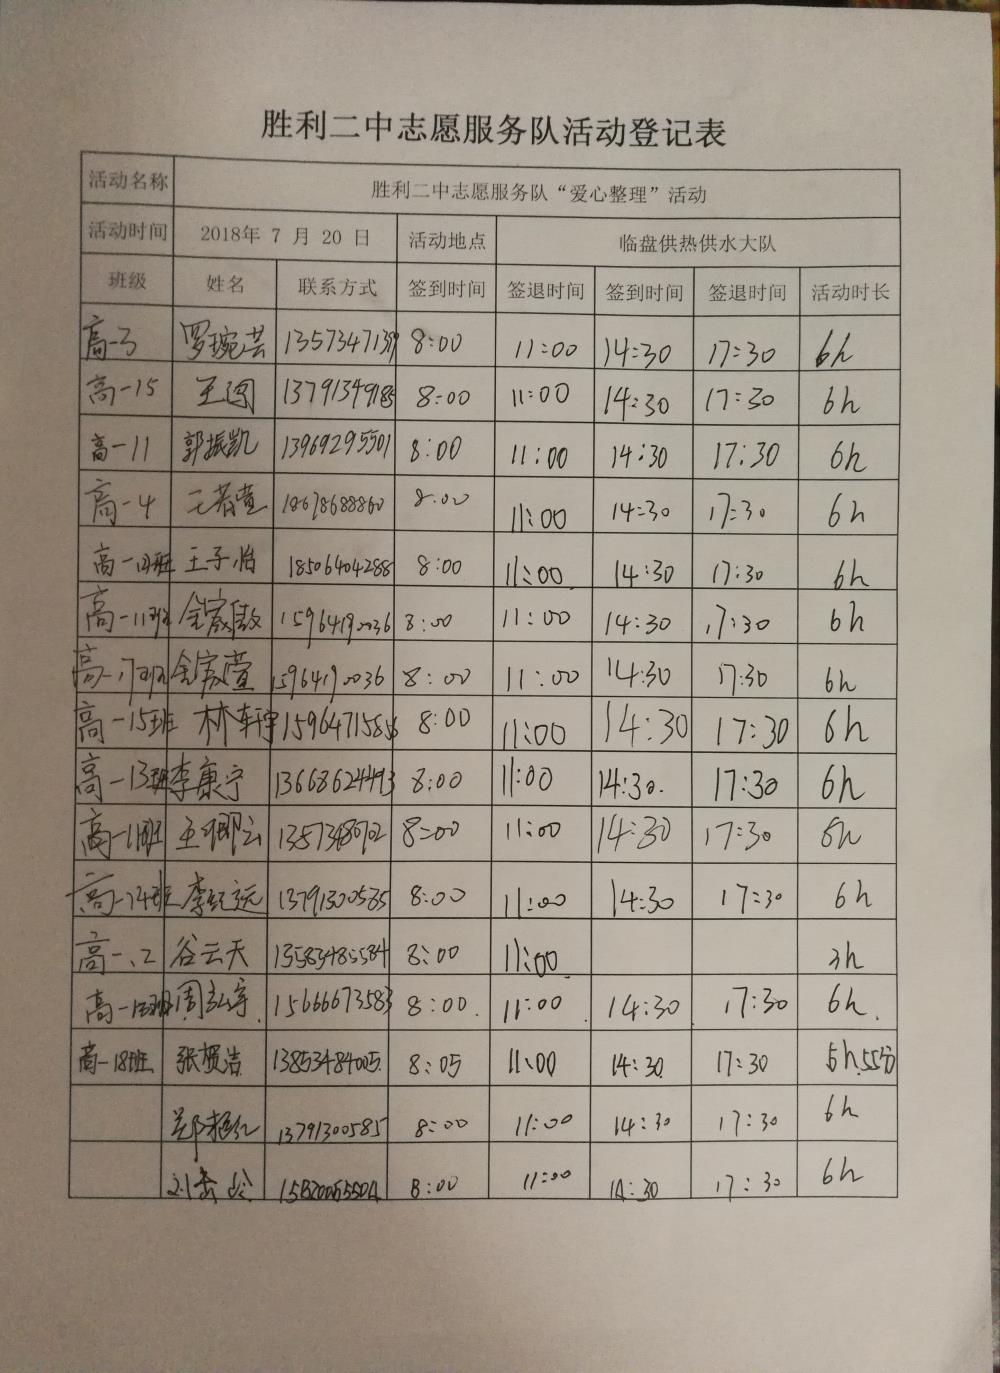 胜利二中志愿服务队活动登记表
活动名称 胜利二中志愿服务队“爱心整理”活动
活动时间 2018年 7 月 20 日 活动地点 临盘供热供水大队
班级 姓名 联系方式 签到时间 签退时间 签到时间 签退时间 活动时长
高一3 罗琬芸 8:00 11:00 14:30 17:30 6h
高一15 王图 13791349185 8:00 11:00 14:30 17:30 6h
高一11 郭振凯 13969295501 8:00 11:00 14:30 17:30 6h
高一4 王若萱 18678688860 8:00 11:00 14:30 17:30 6h
王子怡 18506404288 8:00 11:00 14:30 17:30 6h
高一11班 15964190036 8:00 11:00 14:30 17:30 6h
15964190036 8:00 11:00 14:30 17:30 6h
高一15班 林轩宇 8:00 11:00 14:30 17:30 6h
高一13班 李康宁 13668624493 8:00 11:00 14:30. 17:30 6h
王卿云 8:00 11:00 14:30 17:30 6h
李纪远 13791300585 8:00 11:00 14:30 17:30 6h
谷云天 13583485584 8:00 11:00. 3h
周弘宇 15666673583 8:00. 11:00 14:30 17:30 6h.
高一18班 13853484005. 8:05 11:00 14:30 17:30 5h55分
13791300585 8:00 11:00 14:30 17:30 6h
8:00 11:00 14:30 17:30 6h